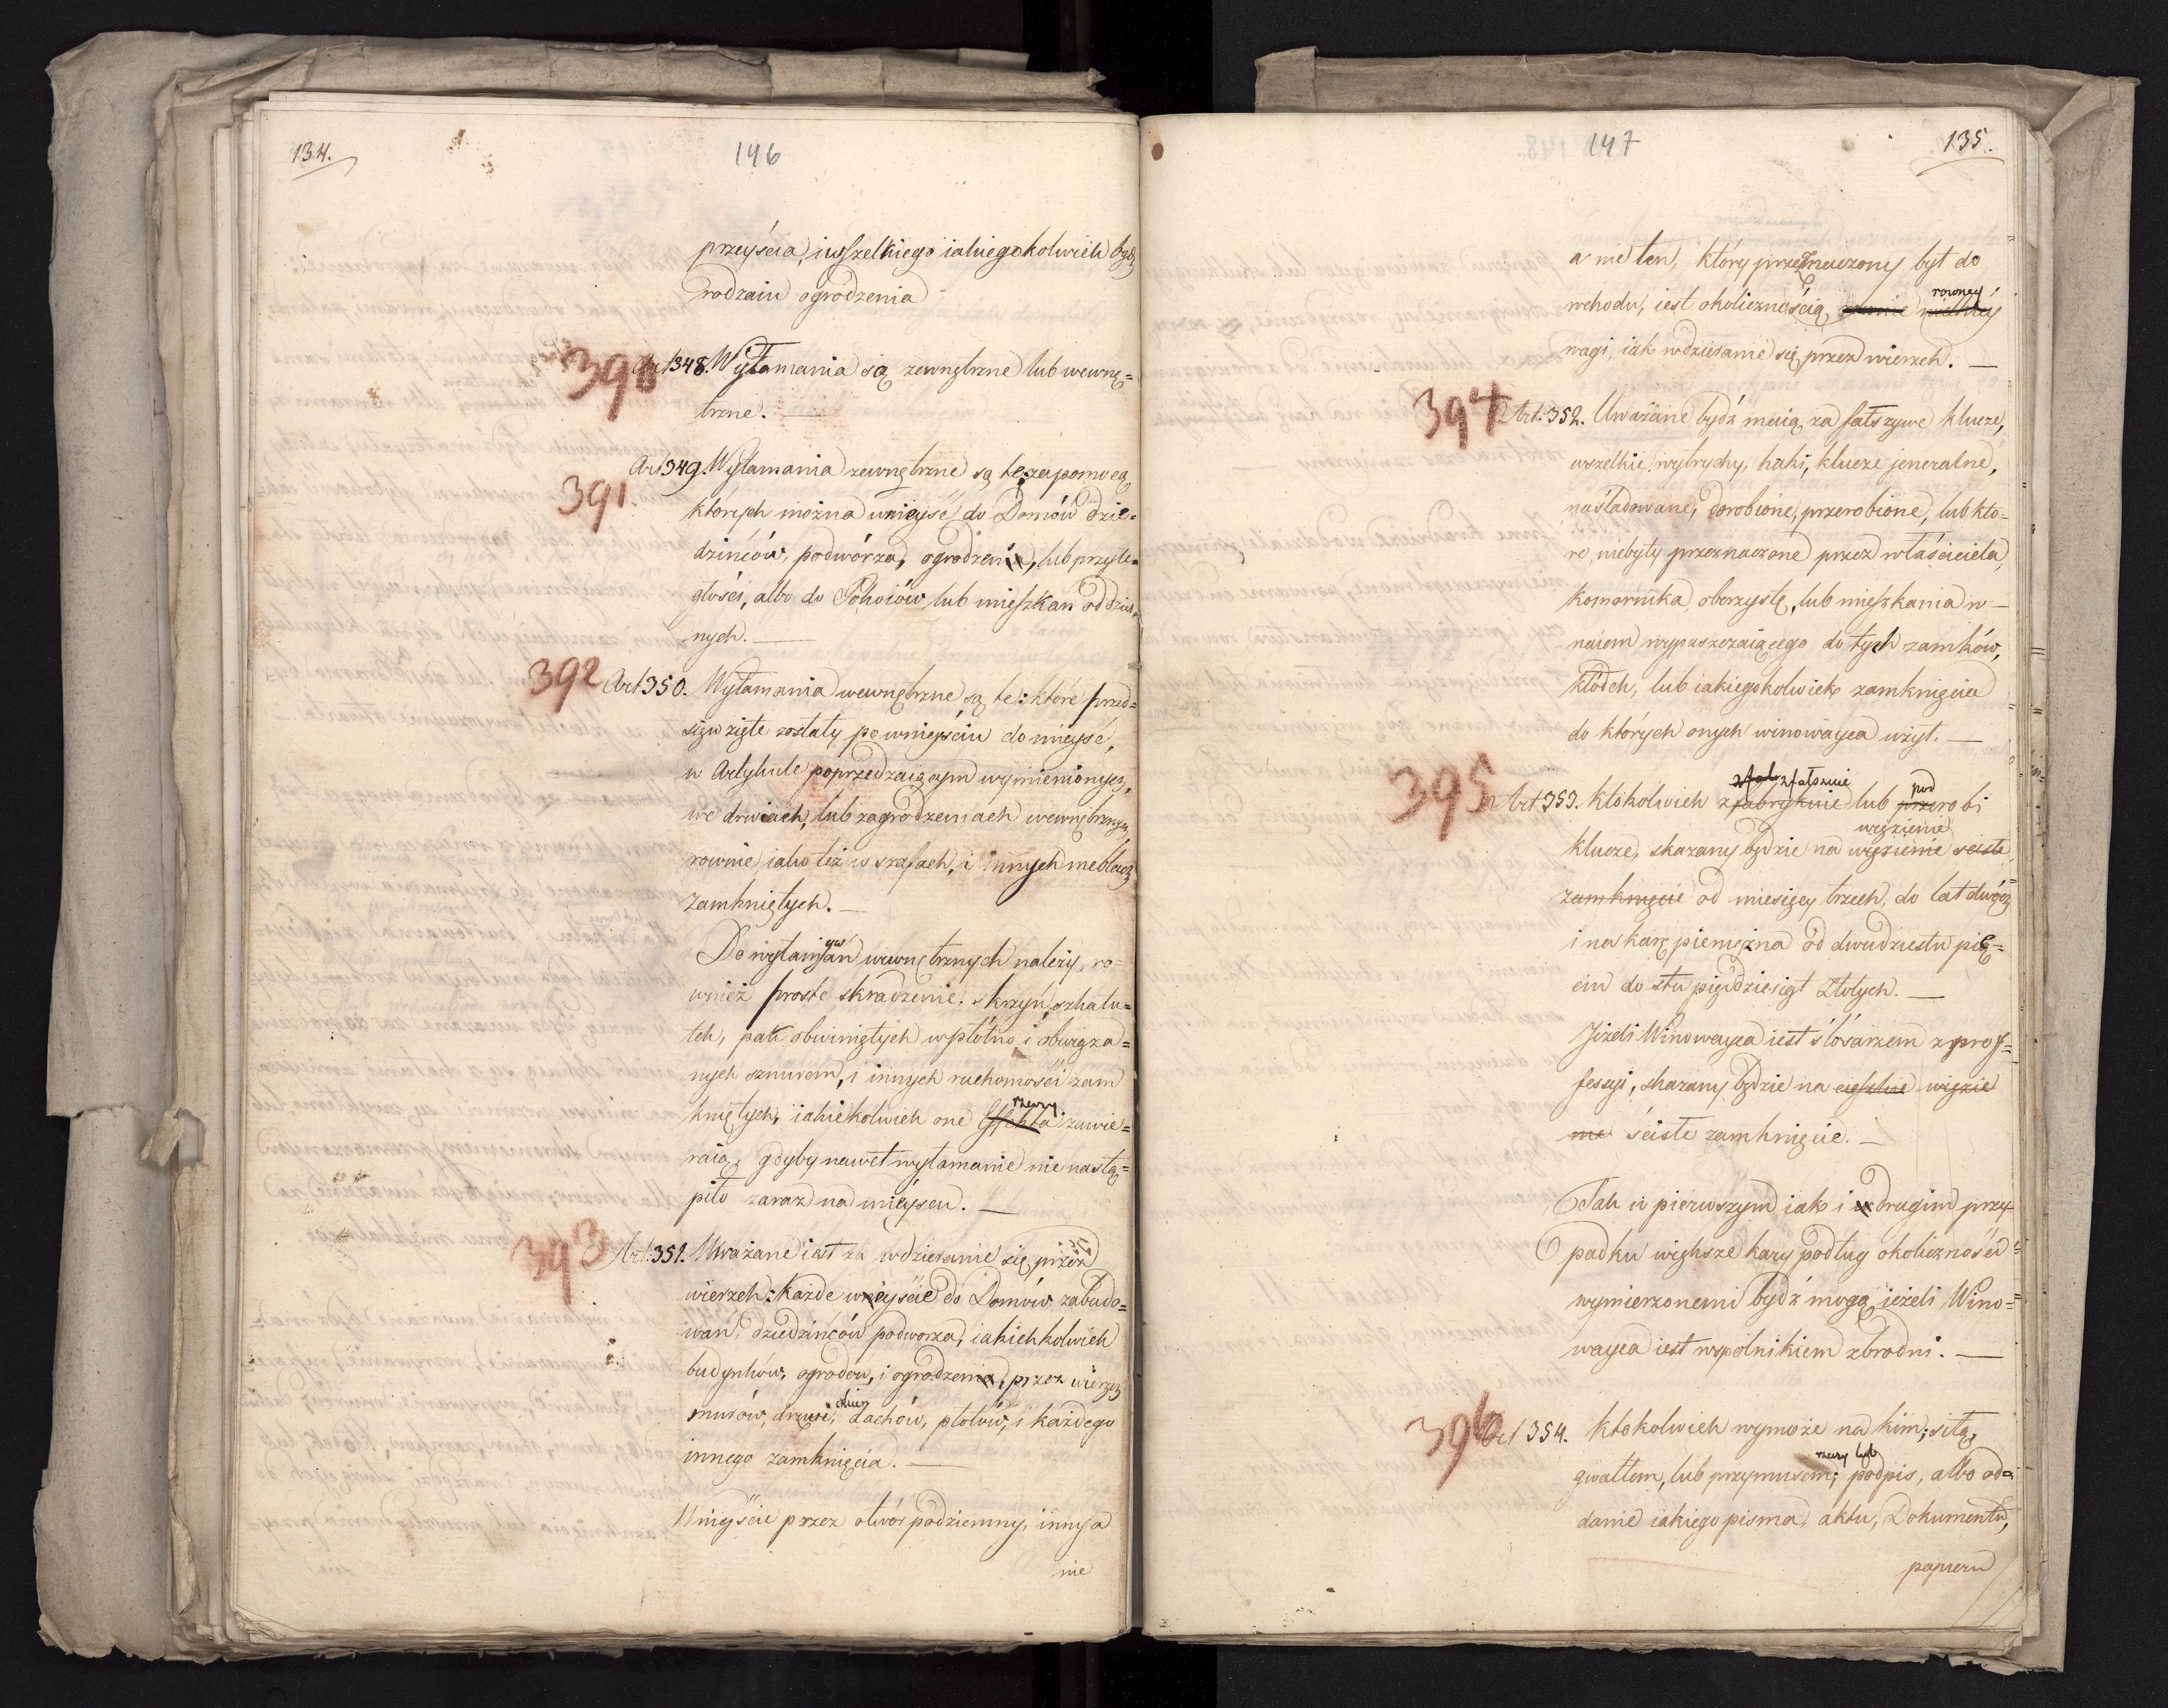 134.
146
przeyścia, i wszelkiego iakiegokolwiek bądź
rodzaiu ogrodzenia
390 Art 348. Wyłamania są zewnętrzne lub wewnę=
trzne. —
391. Art 349. Wyłamania zewnętrzne są te, za pomocą
których można wnieyść do Domów dzie=
dzińców, podwórza, ogrodzeń, lub przyle=
głości, albo do Pokoiów lub mieszkań oddziel=
nych. —
392 Art 350. Wyłamania wewnętrzne są te: które przed=
sięwzięte zostały po wnieyściu do mieysć,
w Artykule poprzedzaiącym wymienionych,
we drwiach, lub zagrodzeniach wewnętrznych
rownie iako też w szafach, i innych meblach
zamkniętych. —
Do wyłamywań wewnętrznych należy, ro=
wnież proste skradzenie: skrzyń, szkatu=
łek, pak obwiniętych w płótno i obwiąza=
nych sznurem, i innych ruchomości zam
kniętych, iakiekolwiek one
rzeczy
Effekta zawie=
raią, gdyby nawet wyłamanie nie nastą=
piło zaraz na mieyscu. —
393 Art: 351. Uważane iest za wdzieranie się przez
wierzch: Każde wnieyście do Domów zabudo=
wań, dziedzińców podworza, iakichkolwiek
budynków, ogrodów, i ogrodzenia, przez wierzch
drzwi
murów, drzwi, dachów, płotów, i każdego
innego zamknięcia. —
Wnieyście przez otwór podziemny, inny a
nie
147
135.
a nie ten, który przeznaczony był do
rowney
wchodu, iest okolicznością
wagi, iak wdzieranie się przez wierzch. —
394 Art: 352. Uważane bydź maią za fałszywe klucze,
wszelkie wytrychy, haki, klucze jeneralne,
naśladowane, dorobione, przerobione, lub kto=
re niebyły przeznaczone przez właściciela,
Komornika, oberzystę, lub mieszkania w —
naiem wypuszczaiącego do tych zamków,
kłodek, lub iakiegokolwiek zamknięcia
do których onych winowayca użył. —
sfałszuie
pod
395 Art 353. Ktokolwiek zfabrykuie lub przerobi
więzienie
klucze, skazany będzie na więzienie ścisłe
zamknięcie od miesięcy trzech, do lat dwóch
i na karę pieniężna od dwudziestu pię=
ciu do stu pięćdziesiąt Złotych. —
Jeżeli Winowayca iest ślósarzem z prof=
fessyi, skazany będzie na ciężkie więzie
nie ścisłe zamknięcie. —
Tak w pierwszym iak i w drugim przy=
padku większe kary podług okoliczności
wymierzonemi bydź mogą, ieżeli Wino=
wayca iest wspólnikiem zbrodni. —
396 Art 354. Ktokolwiek wymoże na kim, siłą,
rzeczy lub
gwałtem, lub przymusem; podpis, albo od=
danie iakiego pisma, aktu, Dokumentu,
papieru